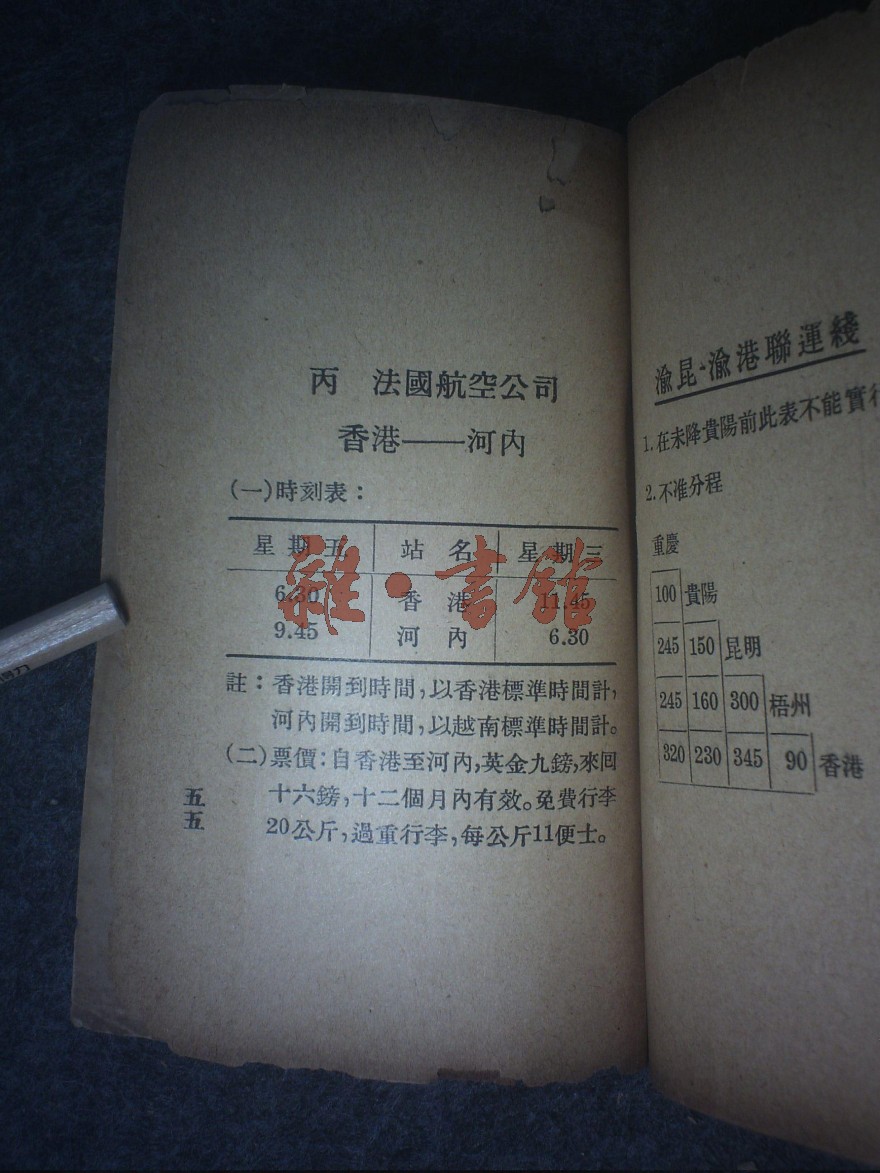 丙　法國航空公司
香港——河內
(一)時刻表：
星期五 站名 星期三
6.30 香港 11.45
9.45 河內 6.30
註：香港開到時間，以香港標準時間計，
河內開到時間，以越南標準時間計。
(二)票價：自香港至河內，英金九鎊，來回
十六鎊，十二個月內有效。免費行李
20公斤，過重行李，每公斤11便士。
五五
雜·書館
渝昆-渝港聯運綫
1.在未降貴陽前此表不能實行
2.不准分程
重慶
100 貴陽
245 150 昆明
245 160 300 梧州
320 230 345 90 香港